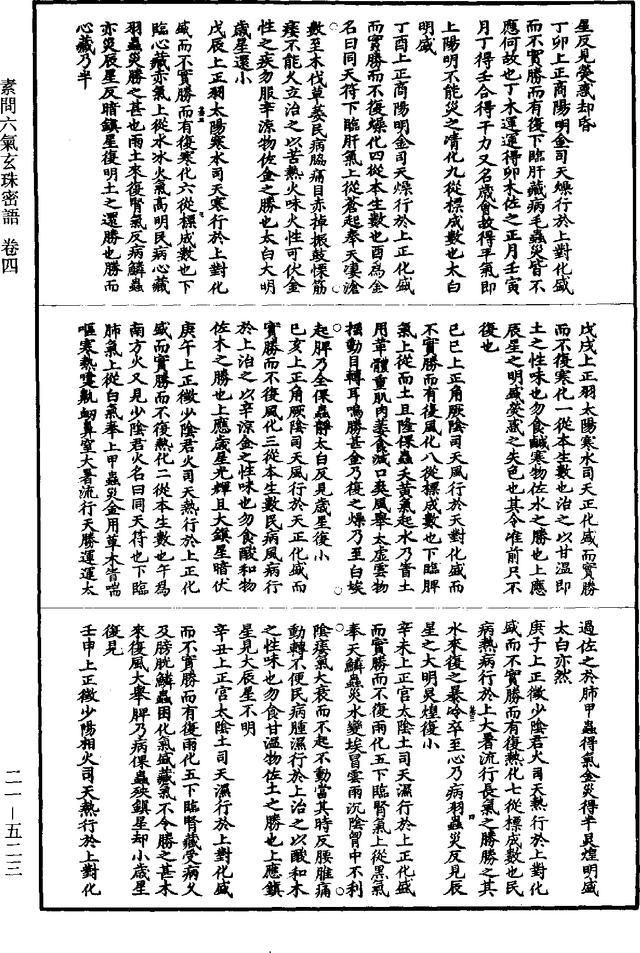 星反見熒惑却昏
丁卯上正商陽明金司天燥行於上對化盛
而不實勝而有復下臨肝藏病毛蟲災皆不
應何故也丁木運運得卯木佐之正月壬寅
月丁得壬合得干力又名歲會故得平氣即
上陽明不能災之清化九從標成數也太白
明盛
丁酉上正商陽明金司天燥行於上正化盛
而實勝而不復燥化四從本生數也酉爲金
名曰同天符下臨肝氣上從蒼起奉天凄滄
數至木伐草萎民病脇痛目赤掉振鼓慄筋
痿不能久立治之以苦熱火味火性可伏金
性之疾勿服辛涼物佐金之勝也太白大明
歲星還小
戊辰上正羽太陽寒水司天寒行於上對化
盛而不實勝而有復寒化六從標成數也下
臨心藏亦氣上從水冰火氣高明民病心藏
羽蟲災勝之甚也雨土來復腎氣反病鱗蟲
亦災辰星反暗鎮星復明土之還勝也勝而
心藏乃半
戊戌上正羽太陽寒水司天正化盛而實勝
而不復寒化一從本生數也治之以甘溫即
土之性味也勿食鹹寒物佐水之勝也上應
辰星之明盛熒惑之失色也其令準前只不
復也
己巳上正角厥陰司天風行於天對化盛而
不實勝而有復風化八從標成數也下臨脾
氣上從而土且隆倮蟲夭黃氣起水乃眚土
用革體重肌肉萎食減口爽風舉太虛雲物
搖動目轉耳鳴勝甚金乃復之燥乃至白埃
起脾乃全倮蟲靜太白反見歲星復小
己亥上正角厥陰司天風行於天正化盛而
實勝而不復風化三從本生數民病風病行
於上治之以辛涼金之性味也勿食酸和物
佐木之勝也上應歲星光輝且大鎮星暗伏
庚午上正徵少陰君火司天熱行於上正化
盛而實勝而不復熱化二從本生數也午爲
南方火又見少陰君火名曰同天符也下臨
肺氣上從白氣奉上甲蟲災金用草木眚喘
嘔寒熱嚏鼽衄鼻窒大暑流行天勝運運太
過佐之於肺甲蟲得氣金災得半炅煌明盛
太白亦然
庚子上正徵少陰君火司天熱行於上對化
盛而不實勝而有復熱化七從標成數也民
病熱病行於上大暑流行長氣之勝勝之其
水來復之暴冷卒至心乃病羽蟲災反見辰
星之大明炅煌復小
辛未上正宮太陰土司天濕行於上正化盛
而實勝而不復雨化五下臨腎氣上從黑氣
奉天鱗蟲災水變埃冒雲雨沉陰胷中不利
陰痿氣大衰而不起不動當其時反腰脽痛
動轉不便民病腫濕行於上治之以酸和木
之性味也勿食甘溫物佐土之勝也上應鎮
星見大辰星不明
辛丑上正宮太陰土司天濕行於上對化盛
而不實勝而有復雨化五下臨腎藏受病父
及膀胱鱗蟲困化氣盛藏氣不令勝之甚木
來復風大舉脾乃病倮蟲殃鎮星却小歲星
復見
壬申上正徵少陽相火司天熱行於上對化
素問六氣玄珠密語 卷四
二一—五二三